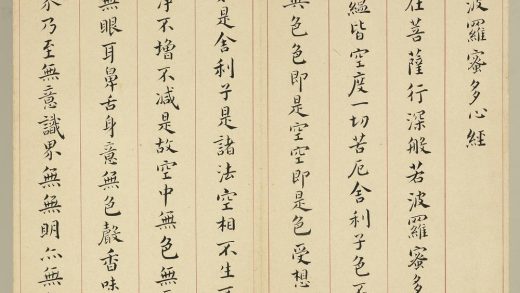 波羅蜜多心經
在菩薩行深般若波羅蜜多
蘊皆空度一切苦厄舍利子色不
異色色即是空空即是色受想
是舍利子是諸法空相不生不
淨不增不減是故空中無色無
無眼耳鼻舌身意無色聲香味
界乃至無意識界無無明亦無